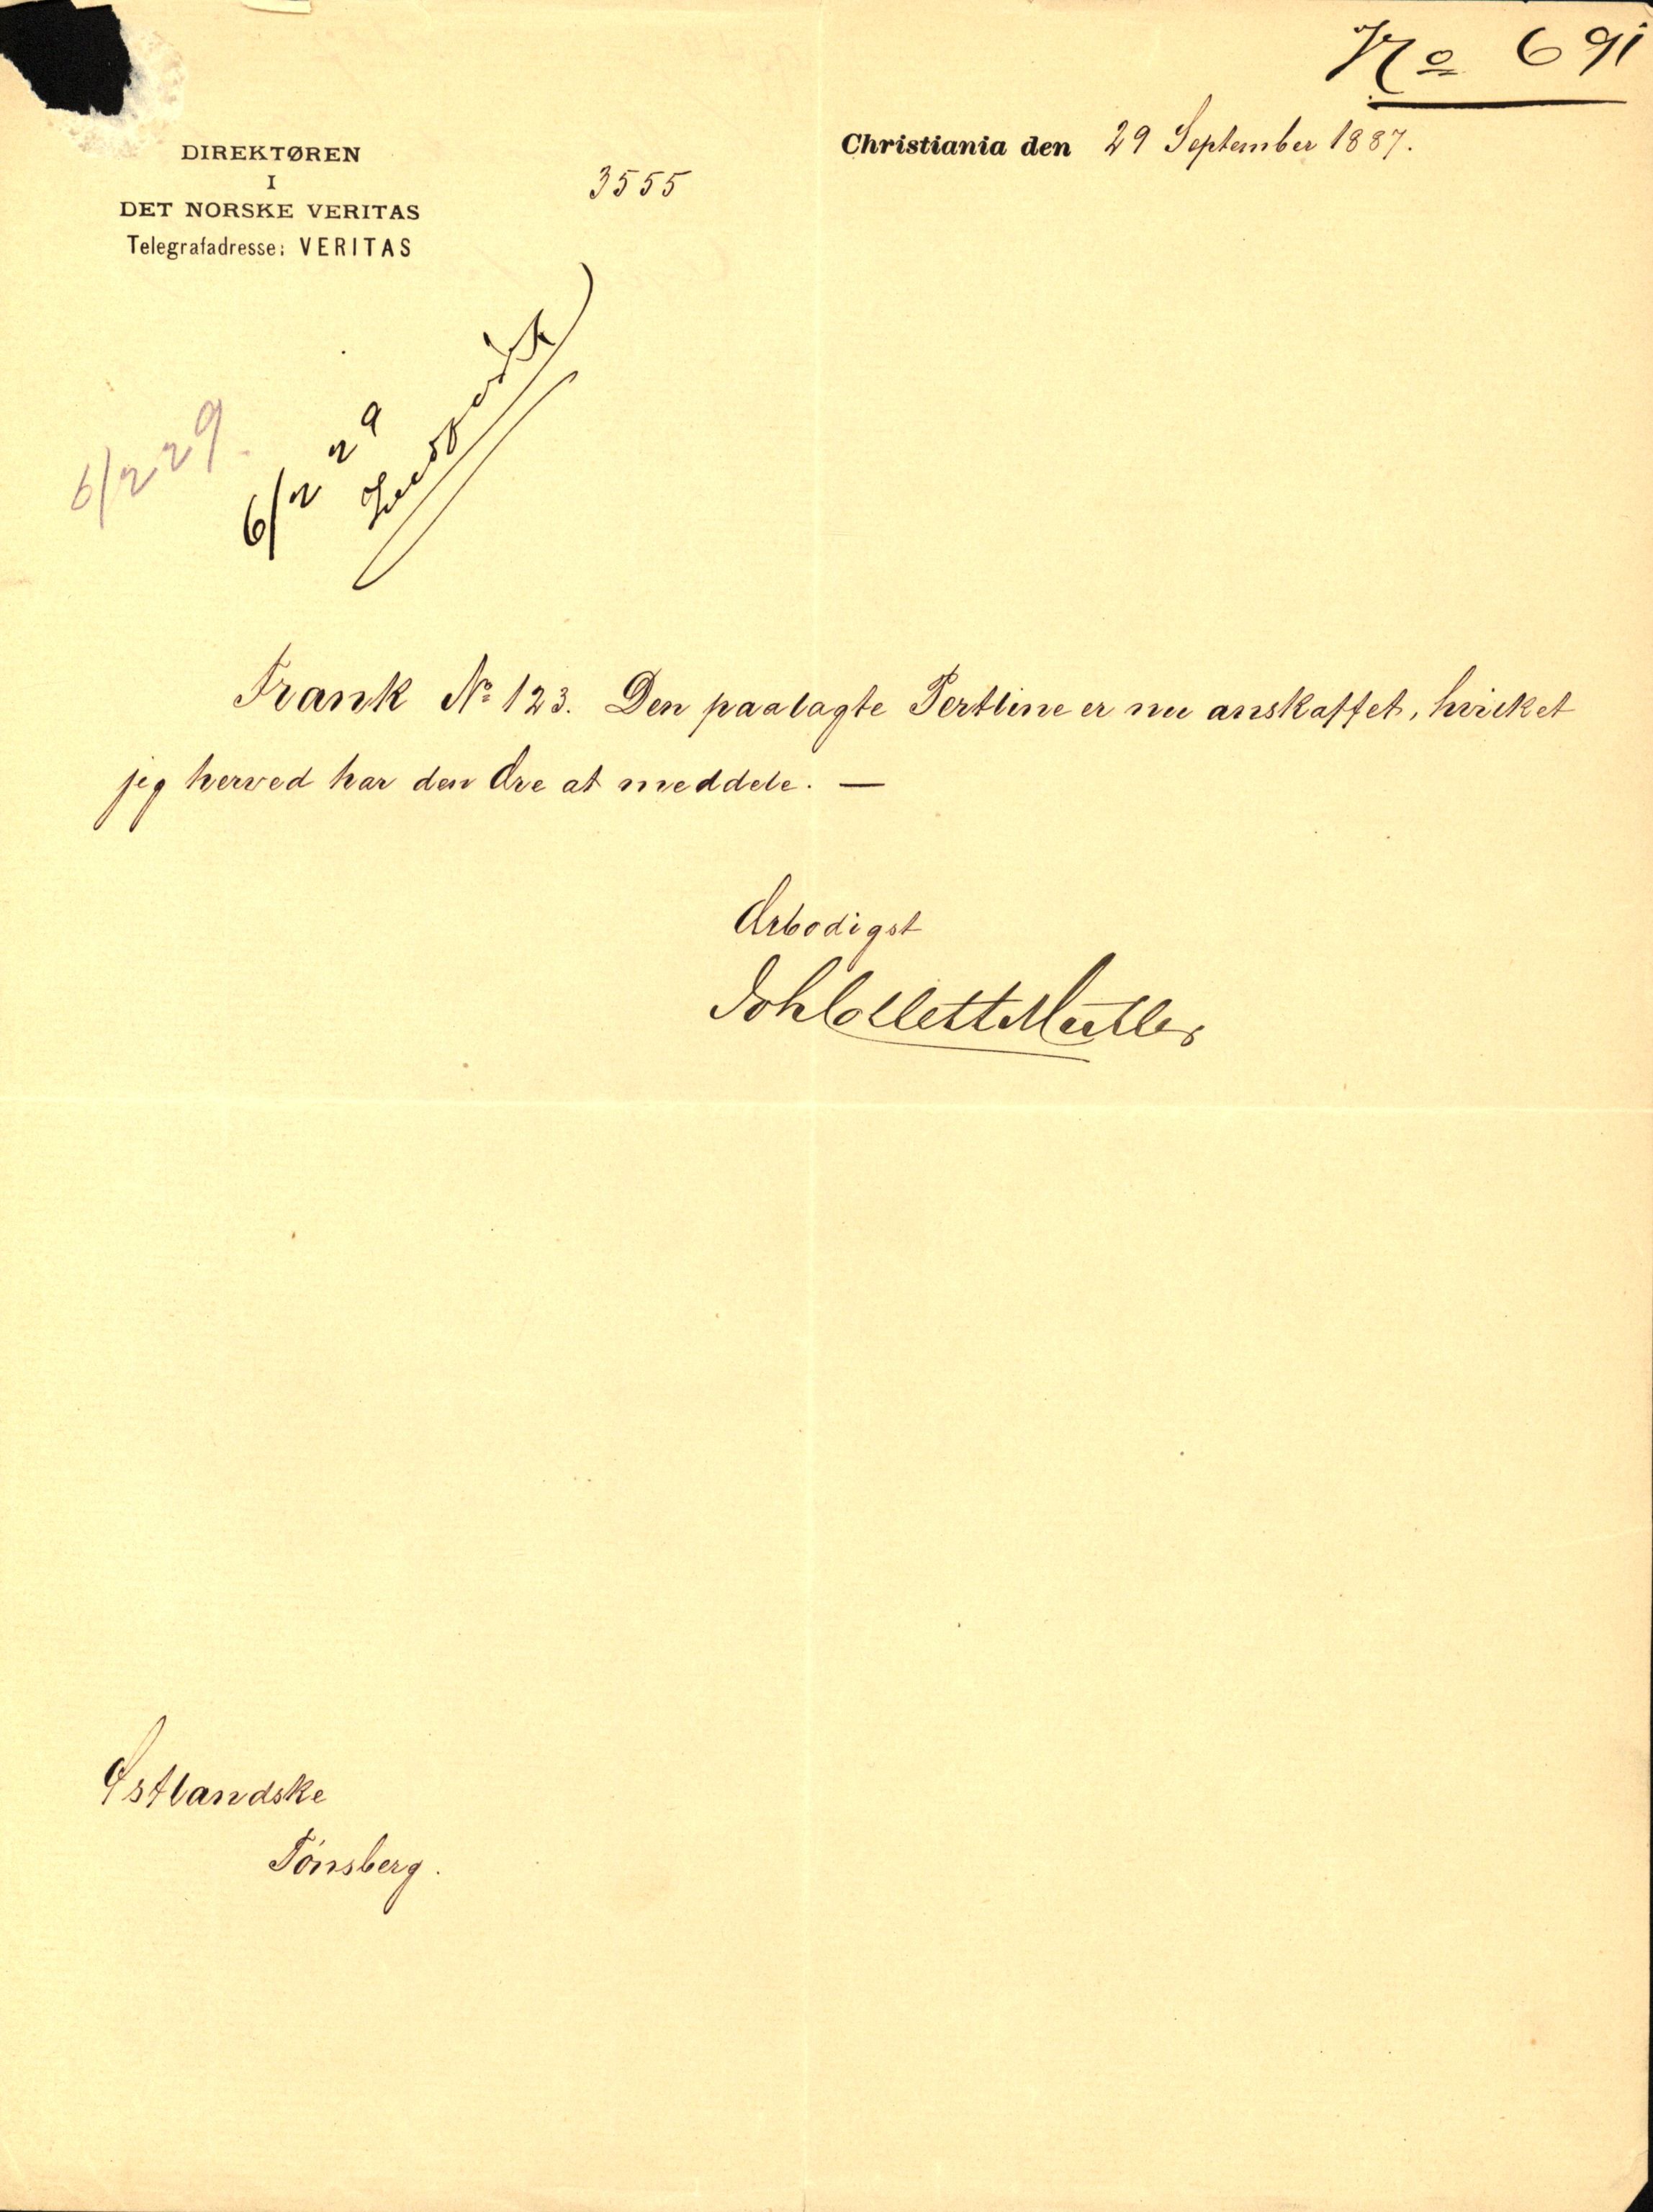 No 691
Christiania den 29 September 1887.
DIREKTØREN
I
DET NORSKE VERITAS
Telegrafadresse: VERITAS
3555
6/2 29.
6/2 29
Frank No 123. Den paalagte Pertline er nu anskaffet, hvilket
jeg herved har den Ære at meddele. —
Ærbødigst
Joh Collett Müller
Østlandske
Tönsberg.